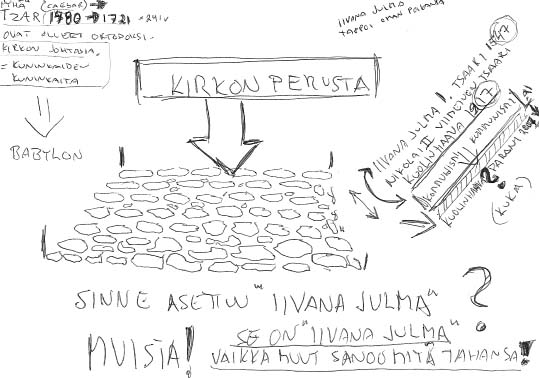 PYHÄ (CAESAR)
TZAR 1980 → 1721
OVAT OLLEET ORTODOKSI-
KIRKON JOHTAJIA.
= KUNINKAIDEN
KUNINKAITA
BABYLON
IIVANA JULMA
TAPPOI OMAN POIKANSA
KIRKON PERUSTA
IIVANA JULMA 1. TSAARI
NIKOLAI II VIIMEINEN TSAARI
KUOLINHAAVA 1917
KOMMUNISMI KOMMUNISMI
KUOLINHAAVA PARANI
?
SINNE ASETTIN "IIVANA JULMA" ?
MUISTA! SE ON "IIVANA JULMA"
VAIKKA MUUT SANOO MITÄ TAHANSA!